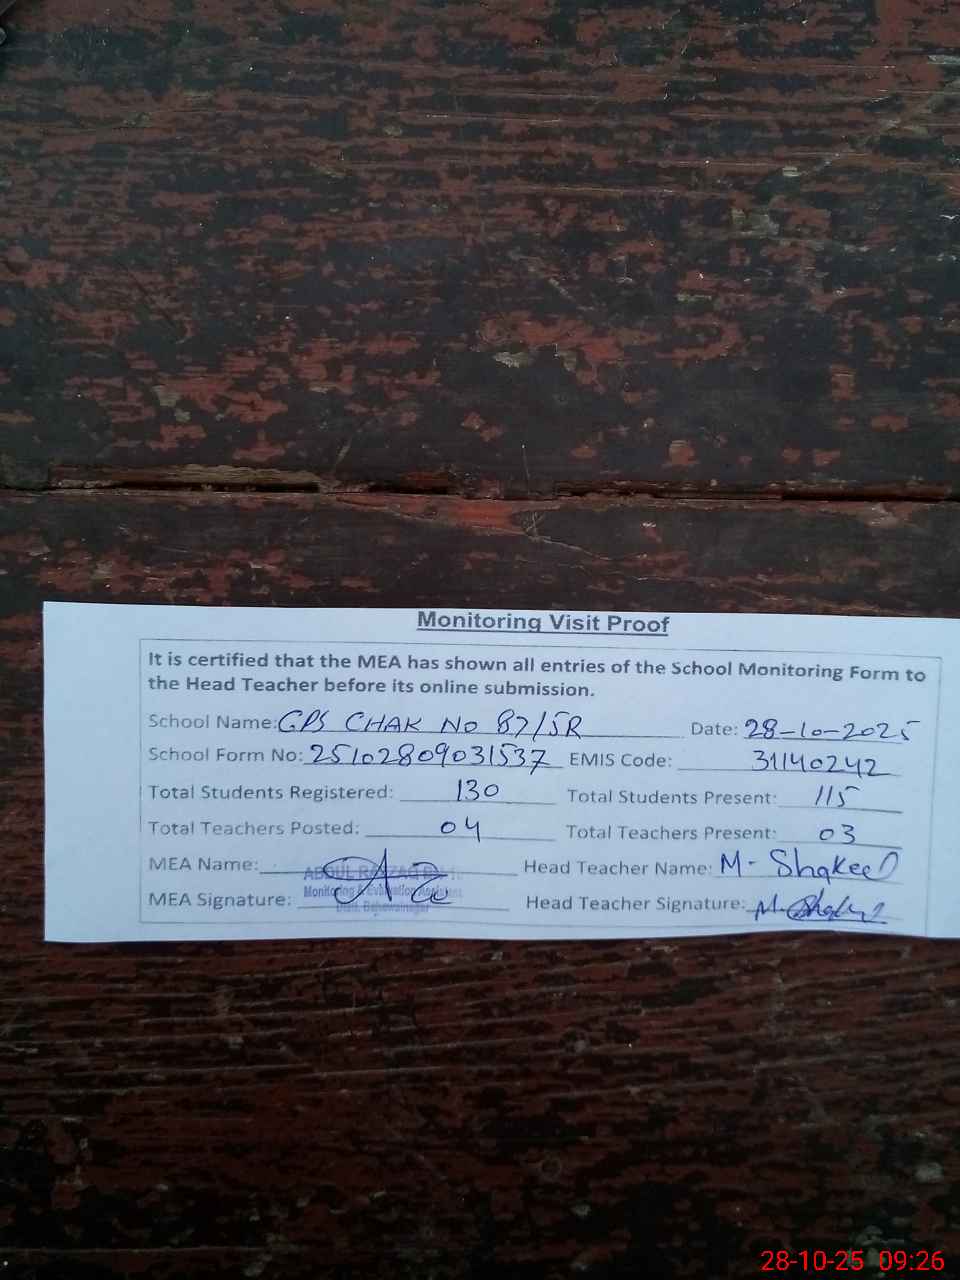 Monitoring Visit Proof
It is certified that the MEA has shown all entries of the School Monitoring Form to
the Head Teacher before its online submission.
School Name: GPS CHAK NO 87/5R Date: 28-10-2025
School Form No: 25102809031537 EMIS Code: 31140242
Total Students Registered: 130 Total Students Present: 115
Total Teachers Posted: 04 Total Teachers Present: 03
MEA Name: ABDUL RAZZAQ Head Teacher Name: M-Shakeel
Monitoring & Evaluation Assistant
MEA Signature: Head Teacher Signature: M. Shakeel
Distt. Bahawalnagar
28-10-25 09:26